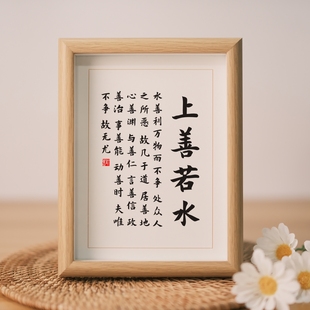 上善若水
水善利万物而不争 处众人
之所恶 故几于道 居善地
心善渊 与善仁 言善信 政
善治 事善能 动善时 夫唯
不争 故无尤